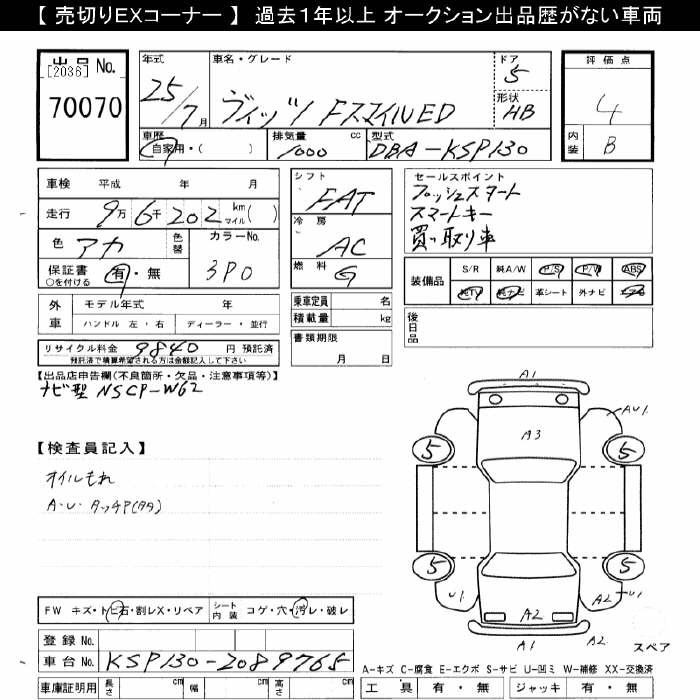 【 売切りEXコーナー 】 過去1年以上 オークション出品歴がない車両
出品 No.
[2036]
70070
年式
25/7月
車名・グレード
ヴィッツ FスマイルED
ドア
5
形状
HB
評価点
4
内装
B
車歴
自家用・( )
排気量 cc
1000
型式
DBA-KSP130
車検 平成 年 月
走行 9万6千202 km マイル ( )
色 アカ 色替
カラーNo.
3P0
保証書 有・無
○を付ける
シフト
FAT
冷房
AC
燃料
G
セールスポイント
プッシュスタート
スマートキー
買い取り車
装備品 S/R 純A/W P/S P/W ABS
純TV 純ナビ 革シート 外ナビ エアB
外車 モデル年式 年
ハンドル 左・右 ディーラー・並行
乗車定員 名
積載量 kg
後日品
リサイクル料金 9840 円 預託済
預託済で積算希望される方は金額記入して下さい
書類期限
月 日
【出品店申告欄(不良箇所・欠品・注意事項等)】
ナビ型 NSCP-W62
【検査員記入】
オイルもれ
A・U・タッチP(タタ)
A1
AU1
A3
5
5
5
5
U1
U1
A2
A2
A1
A2
スペア
FW キズ・トビ石・割レX・リペア シート内装 コゲ・穴・汚レ・破レ
登録 No.
車台 No. KSP130-2089765
車庫証明用 長さ cm 幅 cm 高さ cm
A-キズ C-腐食 E-エクボ S-サビ U-凹ミ W-補修 XX-交換済
工具 有・無 ジャッキ 有・無